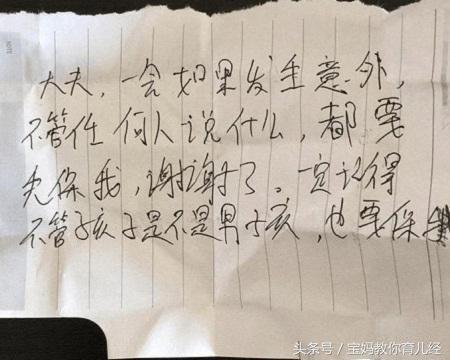 大夫，一会如果发生意外，
不管任何人说什么，都要
先保我，谢谢了。一定记得
不管孩子是不是男孩，也要保
头条号／宝妈教你育儿经